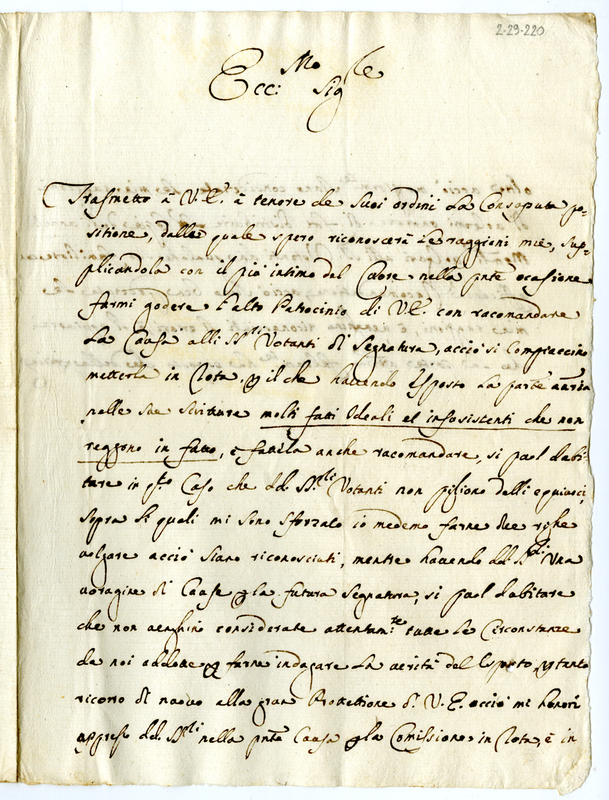 2-29-220
Ecc:mo Sigre
Trasmetto à V.E. à tenore de Suoi ordini La Consaputa po-
sitione, dalla quale spero riconoscerà Le raggioni mie, sup-
plicandola con il più intimo del Cuore nella pnte ocasione
farmi godere L'alto Patrocinio di V.E. con racomandare
La Causa alli SS.ri Votanti di Segnatura, acciò si Compiaccino
metterla in Rota, p il che havendo Esposto La parte auuria
nelle sue Scritture molti fatti Ideali et insosistenti che non
reggono in fatto, e fattila anche racomandare, si puol dubi-
tare in qto Caso che dd. SS.ri Votanti non piglino dalli equiuoci,
sopra di quali mi sono sforzato io medemo farne due righe
volgare acciò siano riconosciuti, mentre havendo dd. SS.ri Una
voragine di Cause p la futura Segnatura, si puol dubitare
che non venghino considerate attentam.te tutte Le Circonstanze
da noi addotte p farne indagare La verità del Esposto, p tanto
ricorro di nuovo alla gran Protettione di V.E. acciò mi honori
appresso dd. SS.ri nella pnte Causa p la Comissione in Rota, e in